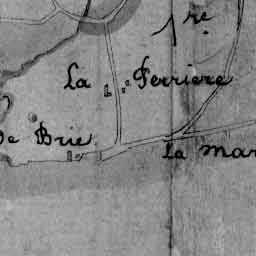 1re
La Ferriere
De Brie
La mar